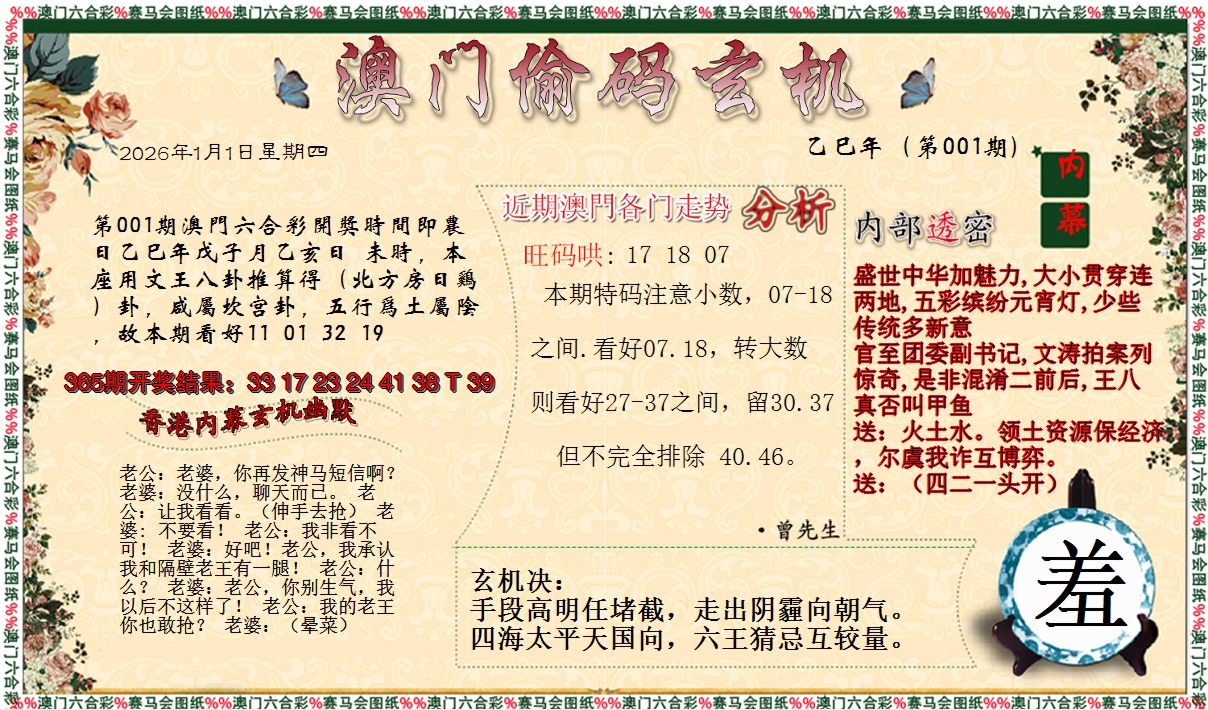 %%澳门六合彩%赛马会图纸%%澳门六合彩%赛马会图纸%%澳门六合彩%赛马会图纸%%澳门六合彩%赛马会图纸%%澳门六合彩%赛马会图纸%%澳门六合彩%赛马会图纸%%
澳门偷码玄机
2026年1月1日星期四
乙巳年（第001期）
内幕
第001期澳門六合彩開獎時間即農
日乙巳年戊子月乙亥日 未時，本
座用文王八卦推算得（北方房日鷄
）卦，咸屬坎宫卦，五行爲土屬陰
，故本期看好11 01 32 19
365期开奖结果：33 17 23 24 41 38 T 39
香港内幕玄机幽默
老公：老婆，你再发神马短信啊？
老婆：没什么，聊天而己。 老
公：让我看看。（伸手去抢） 老
婆： 不要看！ 老公：我非看不
可！ 老婆：好吧！老公，我承认
我和隔壁老王有一腿！ 老公：什
么？ 老婆：老公，你别生气，我
以后不这样了！ 老公：我的老王
你也敢抢？ 老婆：（晕菜）
近期澳門各门走势 分析
旺码哄: 17 18 07
本期特码注意小数，07-18
之间.看好07.18，转大数
则看好27-37之间，留30.37
但不完全排除 40.46。
·曾先生
玄机决：
手段高明任堵截，走出阴霾向朝气。
四海太平天国向，六王猜忌互较量。
内部透密
盛世中华加魅力,大小贯穿连
两地,五彩缤纷元宵灯,少些
传统多新意
官至团委副书记,文涛拍案列
惊奇,是非混淆二前后,王八
真否叫甲鱼
送：火土水。领土资源保经济
，尔虞我诈互博弈。
送：（四二一头开）
羞
%%澳门六合彩%赛马会图纸%%澳门六合彩%赛马会图纸%%澳门六合彩%赛马会图纸%%澳门六合彩%赛马会图纸%%澳门六合彩%赛马会图纸%%澳门六合彩%赛马会图纸%%